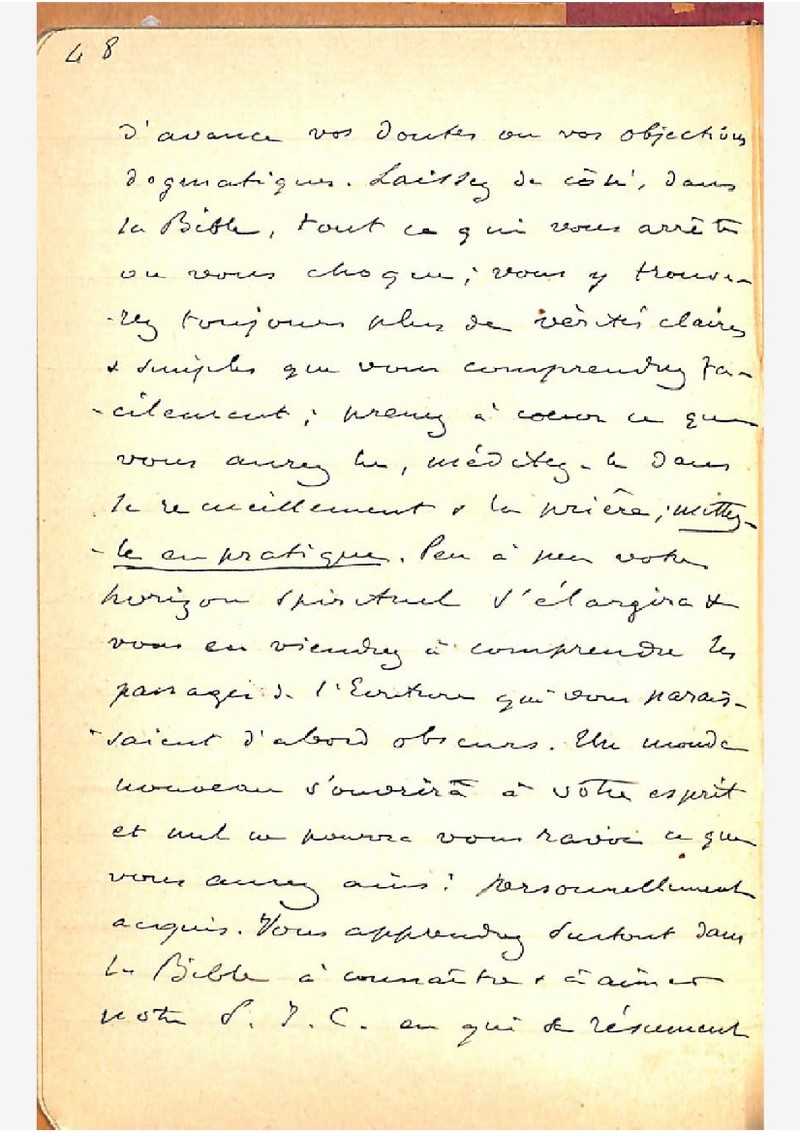 48
d'avance vos doutes ou vos objections
dogmatiques. Laissez de côté, dans
la Bible, tout ce qui vous arrête
ou vous choque; vous y trouve-
-rez toujours plus de vérités claires
& simples que vous comprendrez fa-
-cilement; prenez à coeur ce que
vous aurez lu, méditez-le dans
le recueillement & la prière; mettez-
-le en pratique. Peu à peu votre
horizon spirituel s'élargira &
vous en viendrez à comprendre les
passages de l'Ecriture qui vous parais-
-saient d'abord obscurs. Un monde
nouveau s'ouvrira à votre esprit
et nul ne pourra vous ravir ce que
vous aurez ainsi personnellement
acquis. Vous apprendrez surtout dans
la Bible à connaître & à aimer
notre S. J. C. en qui se résument